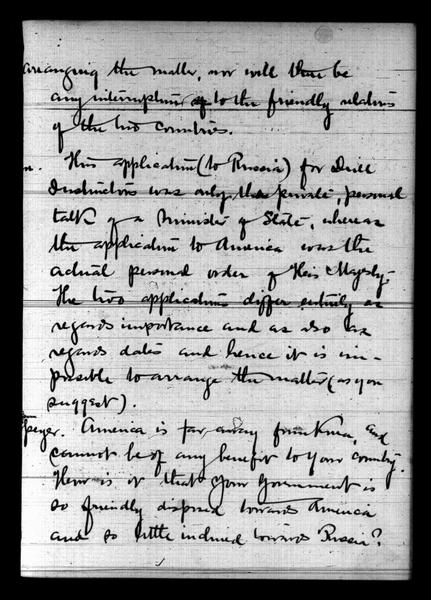 arranging the matter, nor will there be
any interruption to the friendly relations
of the two countries.
n. This application (to Russia) for Drill
Instructors was only the private, personal
talk of a Minister of State, whereas
the application to America was the
actual personal order of His Majesty.
The two applications differ entirely as
regards importance and as also as
regards dates and hence it is im-
possible to arrange the matter (as you
suggest).
peyer. America is far away from Korea, and
cannot be of any benefit to your country.
How is it that your Government is
so friendly disposed towards America
and so little inclined towards Russia?